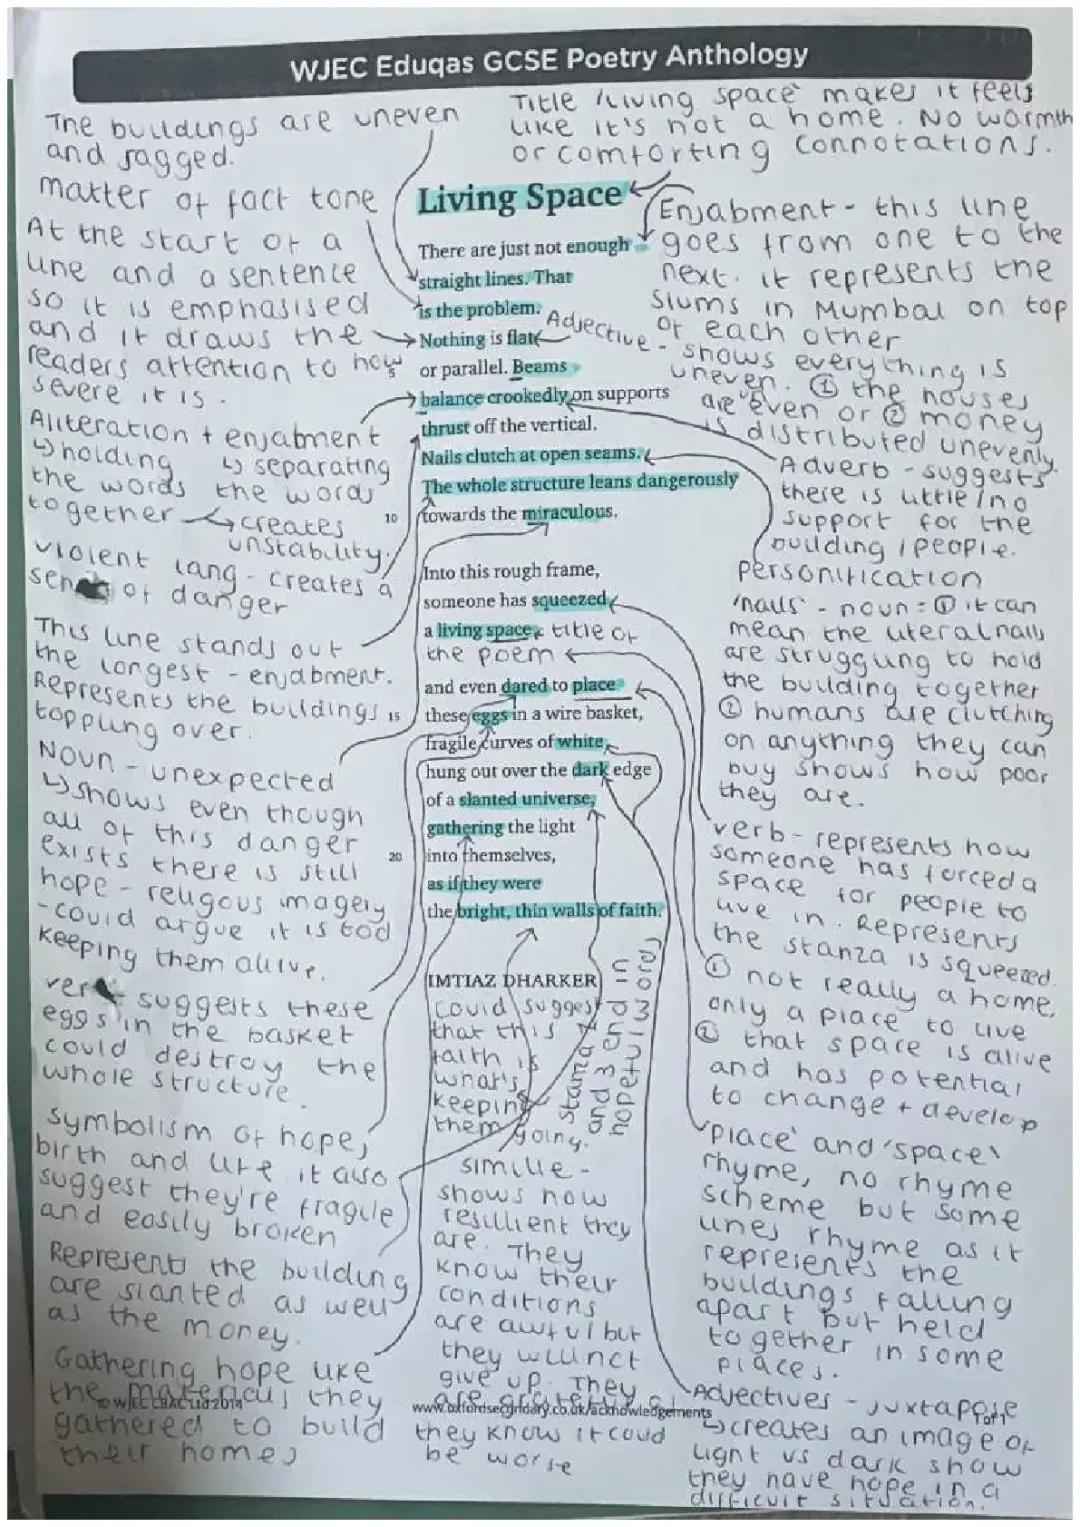 WJEC Eduqas GCSE Poetry Anthology
The buildings are uneven
and jagged.
matter of fact tone
At the start of a
line and a sentence
so it is emphasised
and it draws the
readers attention to how
severe it is.
Aliteration + enjabment
↳ holding ↳ separating
the words the words
together → creates
unstability.
violent lang - creates a
sense of danger
This line stands out
the longest - enjabment.
Represents the buildings
toppling over.
Noun - unexpected
↳ shows even though
all of this danger
exists there is still
hope - religous imagery
- could argue it is God
keeping them alive.
verb suggests these
eggs in the basket
could destroy the
whole structure.
Symbolism of hope,
birth and life. it also
suggest they're fragile
and easily broken
Represents the building
are slanted as well
as the money.
Gathering hope like
the materials they
gathered to build
their homes
Title 'living space' makes it feels
like it's not a home. No warmth
or comforting connotations.
Living Space
There are just not enough
straight lines. That
is the problem.
Nothing is flat
or parallel. Beams
balance crookedly on supports
thrust off the vertical.
Nails clutch at open seams.
The whole structure leans dangerously
10 towards the miraculous.
Into this rough frame,
someone has squeezed
a living space
title of
the poem
and even dared to place
15 these eggs in a wire basket,
fragile curves of white
hung out over the dark edge
of a slanted universe,
gathering the light
20 into themselves,
as if they were
the bright, thin walls of faith.
IMTIAZ DHARKER
could suggest
that this
faith is
what's
keeping
them going.
stanza 2
and 3 end in
hopeful words
simile -
shows how
resillient they
are. They
know their
conditions
are awful but
they will not
give up. They
are grateful as
they know it could
be worse
Enjabment - this line
goes from one to the
next. it represents the
slums in Mumbai on top
of each other
Adjective - shows everything is
uneven. ① the houses
are even or ② money
is distributed unevenly.
Adverb - suggests
there is little/no
support for the
building / people.
personification
'nails' - noun = ① it can
mean the literal nails
are struggling to hold
the building together
② humans are clutching
on anything they can
buy shows how poor
they are.
verb - represents how
someone has forced a
space for people to
live in. Represents
the stanza is squeezed.
① not really a home,
only a place to live
② that space is alive
and has potential
to change + develop
'place' and 'space'
rhyme, no rhyme
scheme but some
lines rhyme as it
represents the
buildings falling
apart but held
together in some
places.
Adjectives - juxtapose
↳ creates an image of
light vs dark show
they have hope in a
difficult situation.
© WJEC CBAC Ltd 2014
www.oxfordsecondary.co.uk/acknowledgements
1 of 1